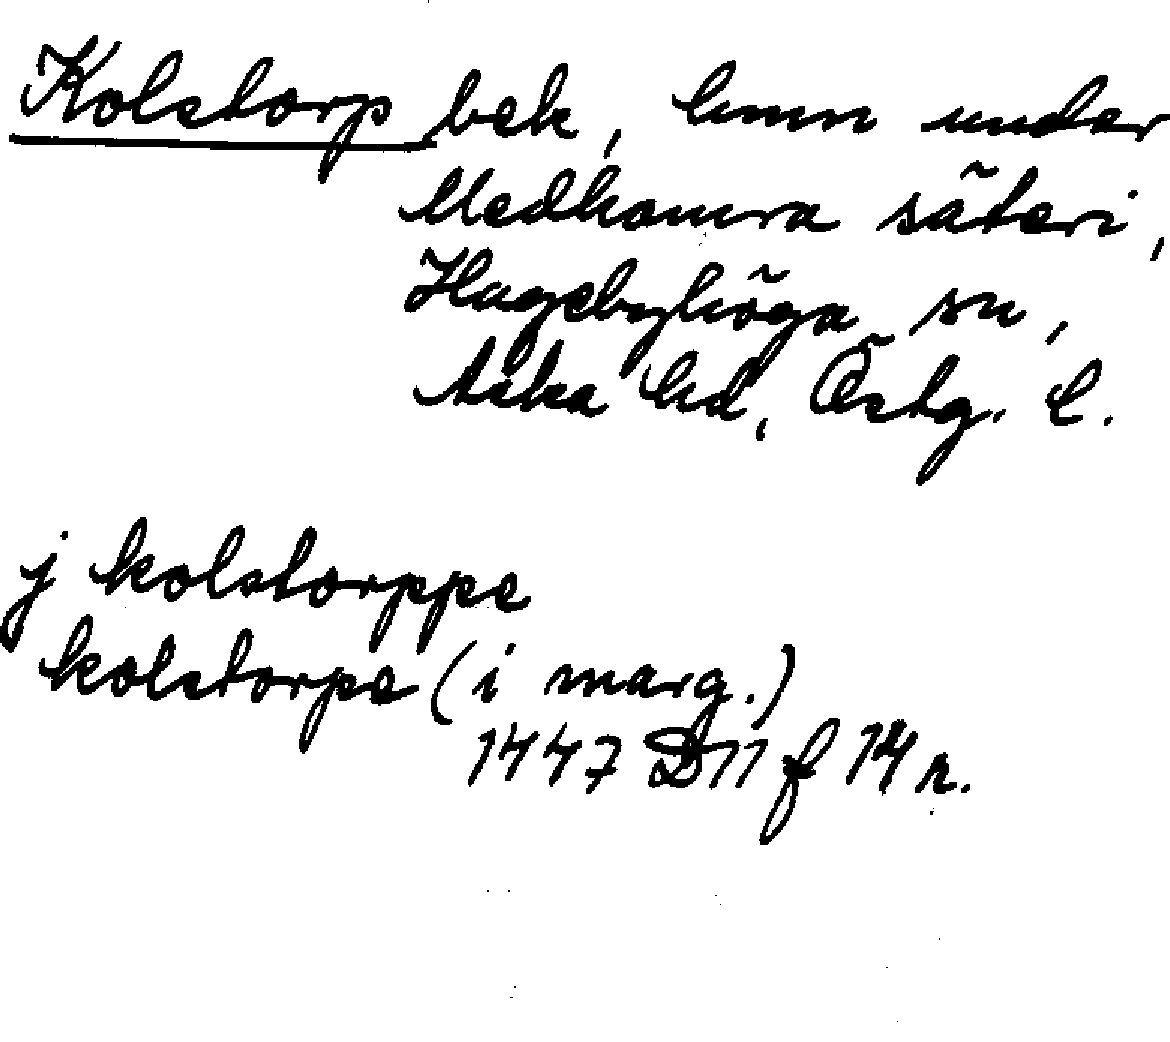 Kolstorp bek, hmn under
Medhamra säteri,
Hagebyhöga sn,
Aska hd, Östg. l.
j kolstorppe
kolstorpe (i marg.)
1447 D11 f 14 r.